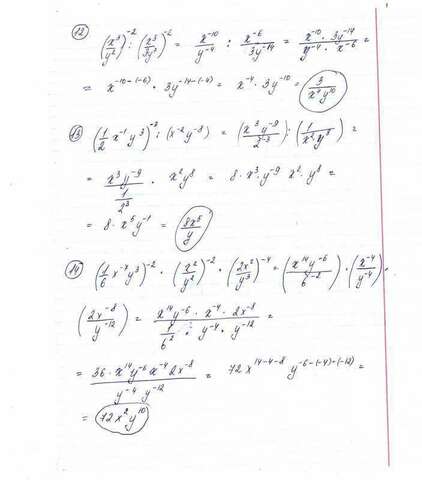 12 (x⁵/y²)⁻² : (x³/3y⁷)⁻² = x⁻¹⁰/y⁻⁴ : x⁻⁶/3y⁻¹⁴ = x⁻¹⁰ · 3y⁻¹⁴/y⁻⁴ · x⁻⁶ =
= x⁻¹⁰⁻⁽⁻⁶⁾ · 3y⁻¹⁴⁻⁽⁻⁴⁾ = x⁻⁴ · 3y⁻¹⁰ = 3/x⁴y¹⁰
13 (1/2 x⁻¹ y³)⁻³ : (x⁻² y⁻⁸) = (x³y⁻⁹/2⁻³) : (1/x²y⁸) =
= x³y⁻⁹/1/2³ · x²y⁸ = 8 · x³ · y⁻⁹ x² · y⁸ =
= 8 · x⁵ y⁻¹ = 8x⁵/y
14 (1/6 x⁻⁷y³)⁻² · (x²/y²)⁻² · (2x²/y³)⁻⁴ = (x¹⁴y⁻⁶/6⁻²) · (x⁻⁴/y⁻⁴) ·
(2x⁻⁸/y⁻¹²) = x¹⁴y⁻⁶ · x⁻⁴ · 2x⁻⁸/1/6² · y⁻⁴ · y⁻¹² =
= 36 · x¹⁴y⁻⁶x⁻⁴ 2x⁻⁸/y⁻⁴ y⁻¹² = 72x¹⁴⁻⁴⁻⁸ y⁻⁶⁻⁽⁻⁴⁾⁻⁽⁻¹²⁾ =
= 72x²y¹⁰